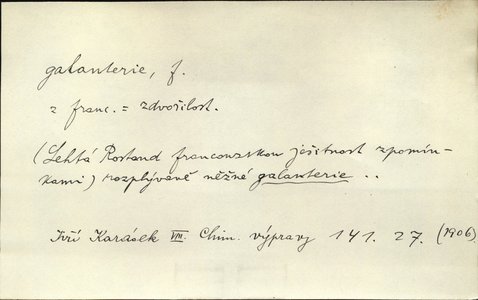 galanterie, f.
z franc. = zdvořilost.
(Lehtá Rostand francouzskou ješitnost zpomín-
kami) rozplývavě něžné galanterie ..
Jiří Karásek VIII. Chim. výpravy 141. 27. (1906)